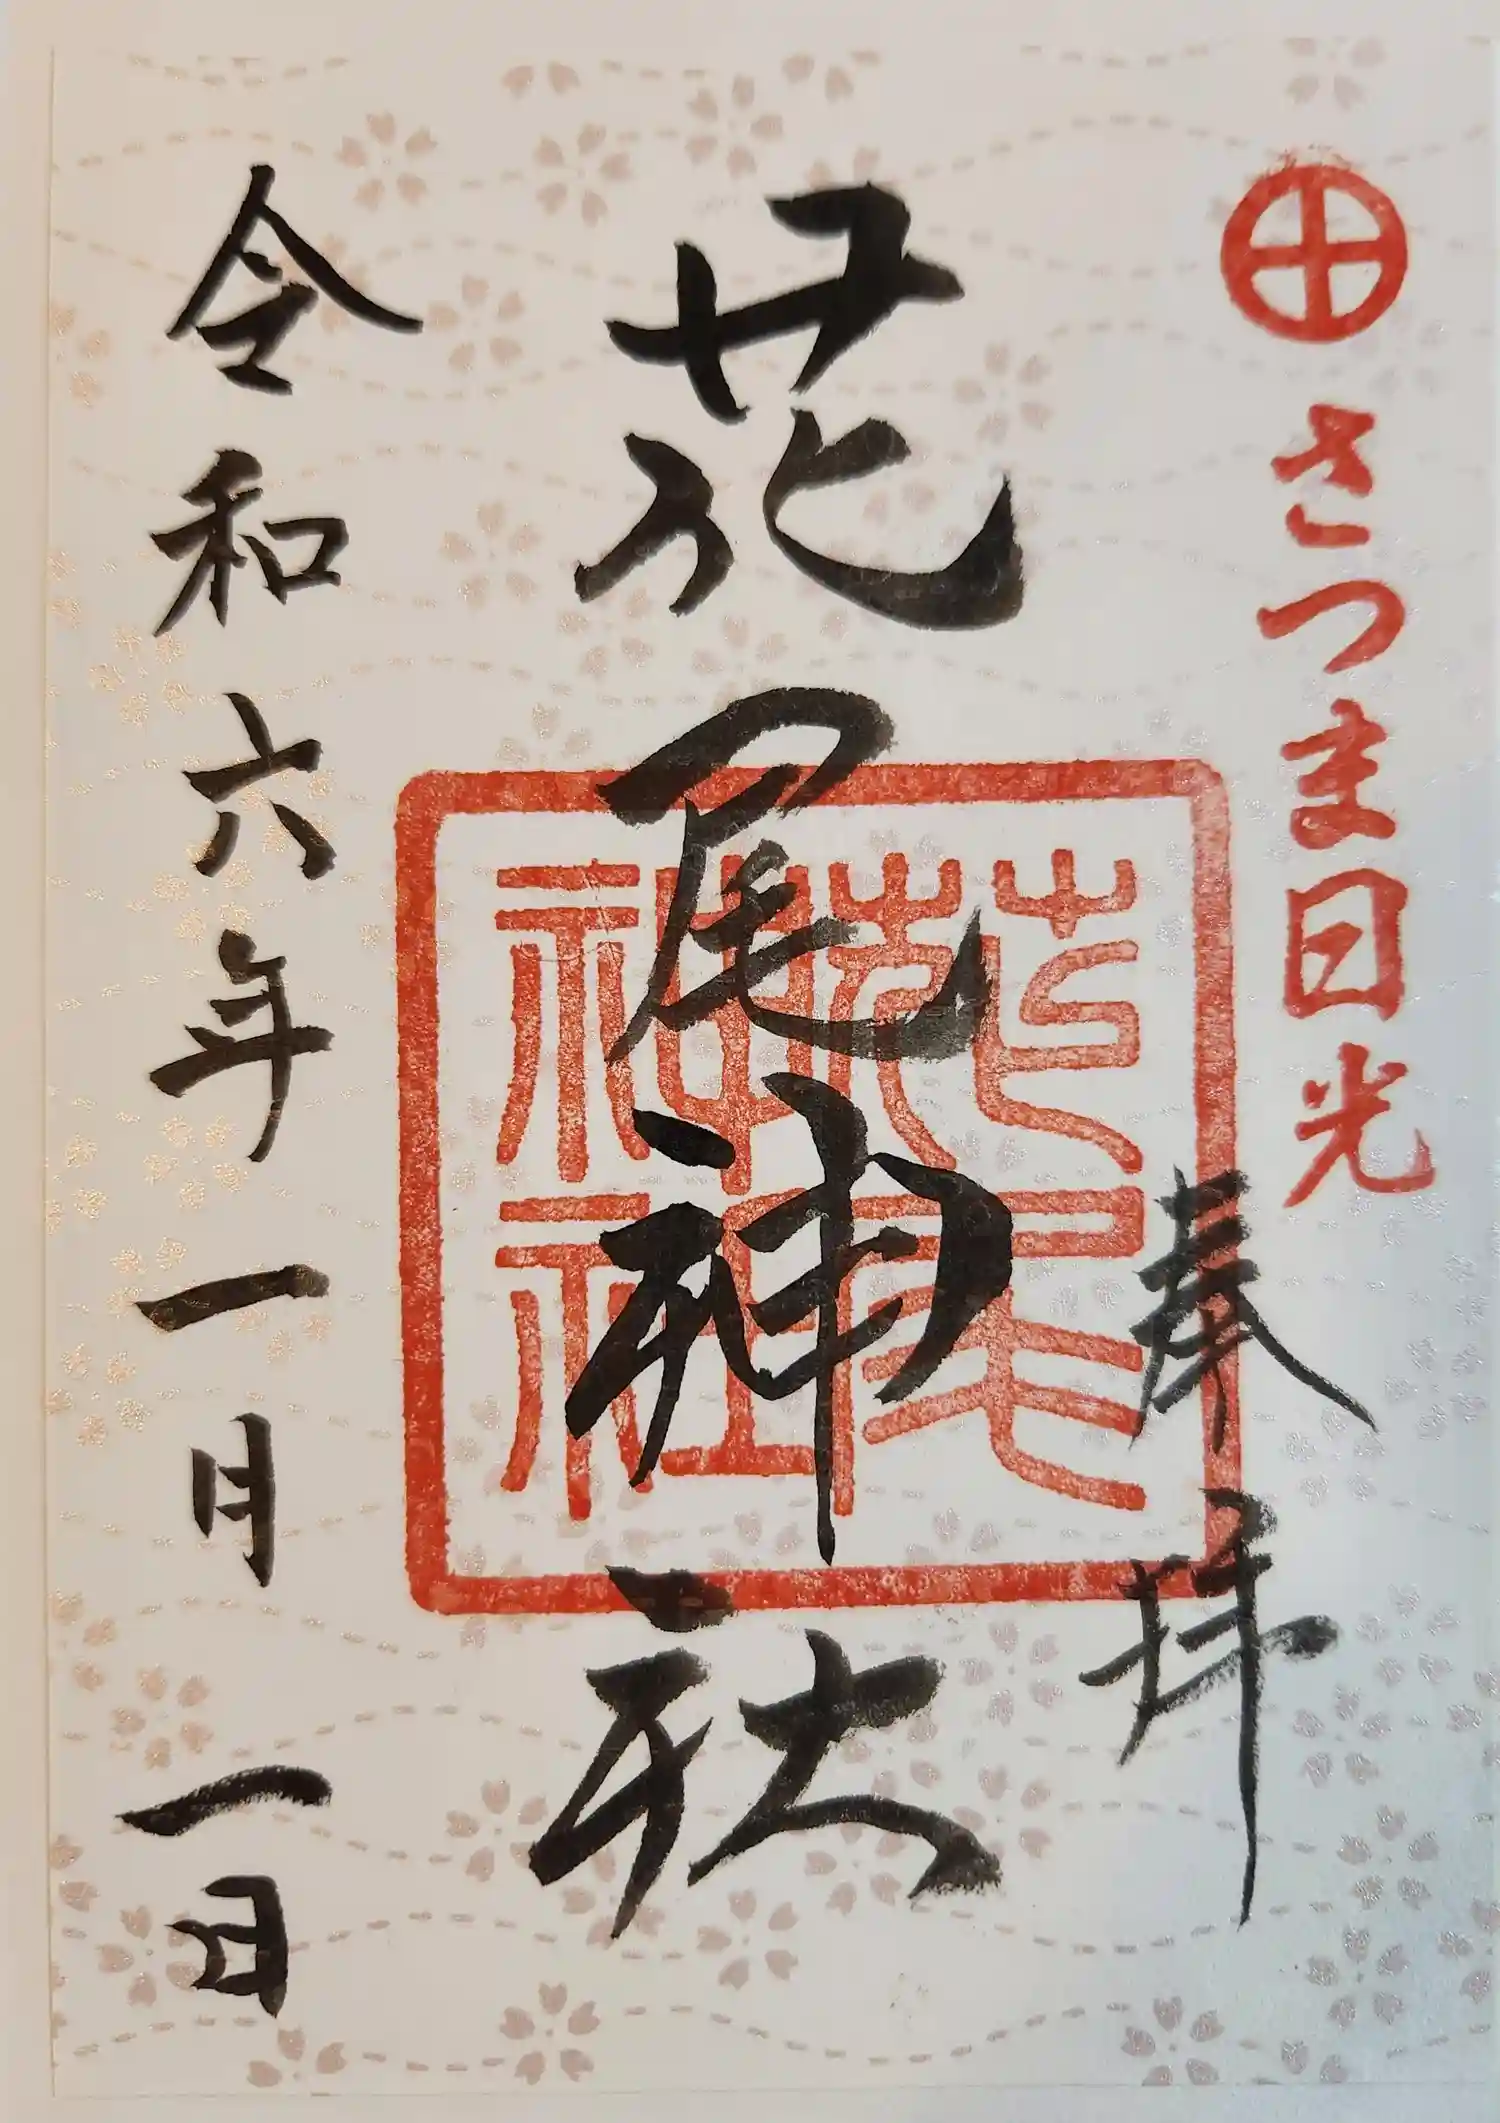 さつま日光
奉拝
花尾神社
花尾
神社
令和六年一月一日